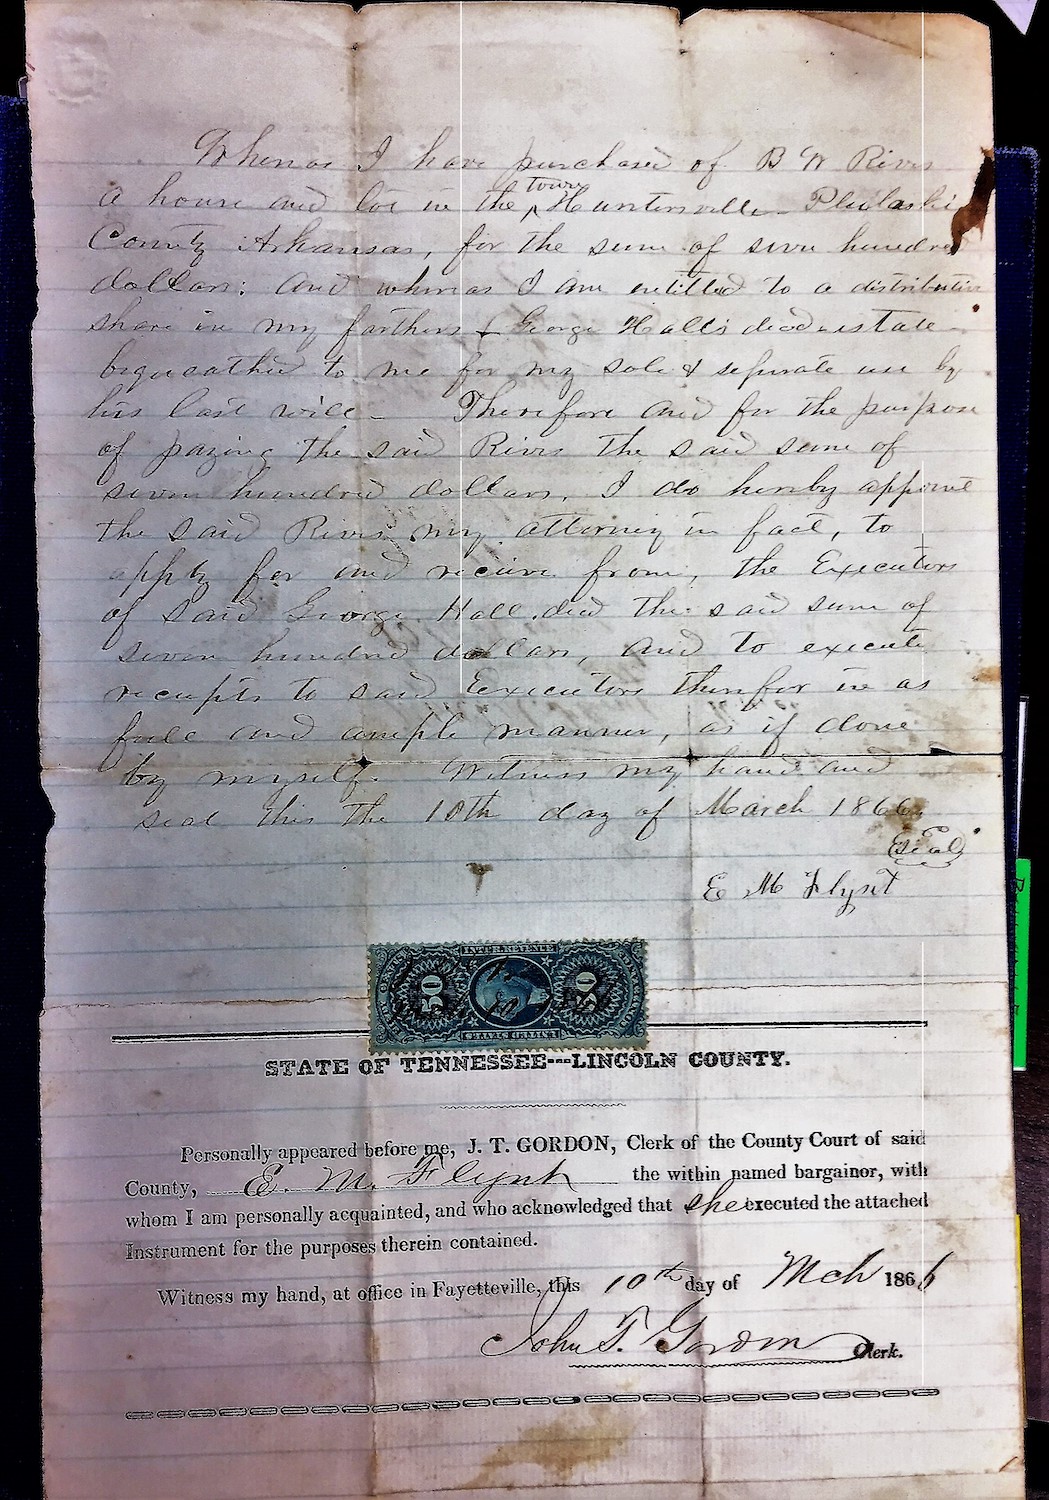 Whereas I have purchased of B W Rives
a house and lot in the town Huntersville Plulaski
County Arkansas, for the sum of seven hundred
dollars: and whereas I am entitled to a distributive
share in my farthers George Hall's decd estate
bequeathed to me for my sole & seperate use by
his last will – Therefore and for the purpose
of paying the said Rives the said sum of
seven hundred dollars, I do hereby appoint
the said Rives my attorney in fact, to
apply for and receive from, the Executors
of said George Hall decd the said sum of
seven hundred dollars, and to execute
receipts to said Executors therefor in as
full and ample manner, as if done
by myself. Witness my hand and
seal this the 10th day of March 1866.
Seal
E M Flynt
INTER. REVENUE
50 50
STATE OF TENNESSEE---LINCOLN COUNTY.
Personally appeared before me, J. T. GORDON, Clerk of the County Court of said
County, E. M. Flynt the within named bargainor, with
whom I am personally acquainted, and who acknowledged that she executed the attached
Instrument for the purposes therein contained.
Witness my hand, at office in Fayetteville, this 10th day of Mch 1866
John T. Gordon Clerk.